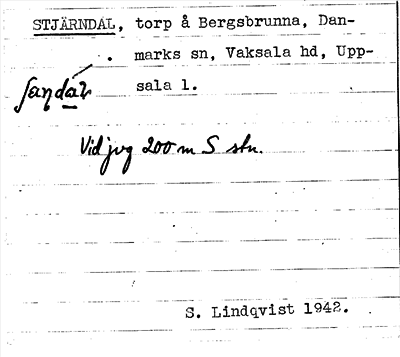 STJÄRNDAL, torp å Bergsbrunna, Dan-
marks sn, Vaksala hd, Upp-
sala l.
Vid jvg 200 m S stn.
S. Lindqvist 1942.